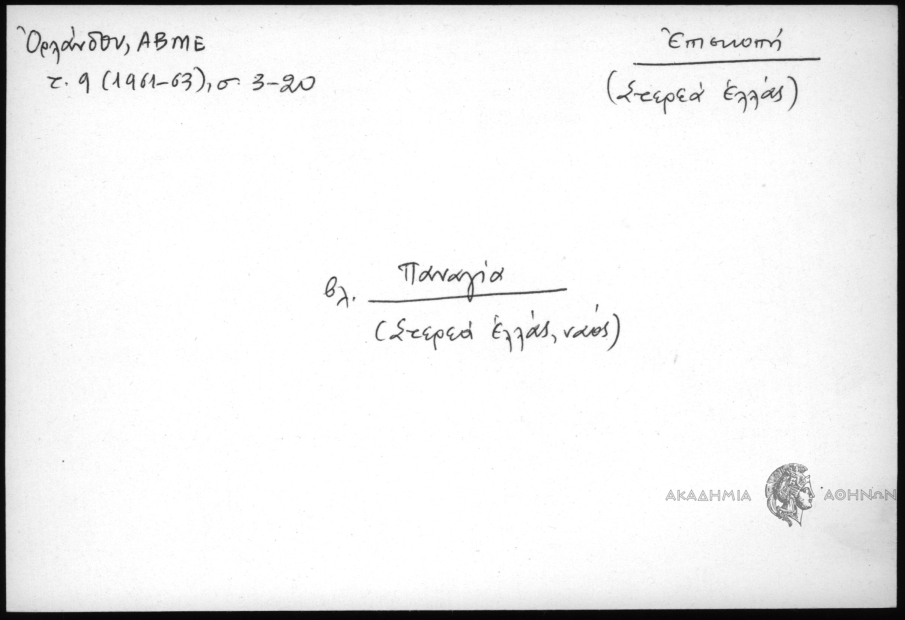 Ὀρλάνδου, ΑΒΜΕ
τ. 9 (1961-63), σ. 3-20
Ἐπισκοπή
(Στερεά Ἑλλάς)
βλ. Παναγία
(Στερεά Ἑλλάς, ναός)
ΑΚΑΔΗΜΙΑ ΑΘΗΝΩΝ